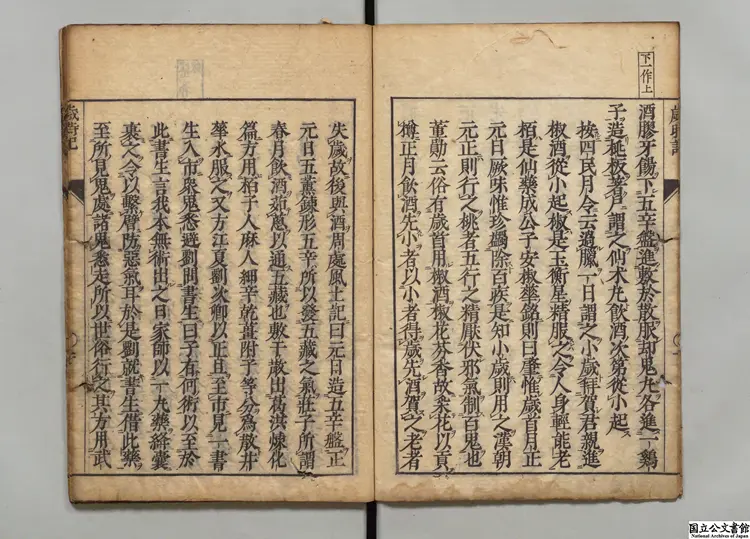 下一作上
歲時記
酒膠牙餳下五辛盤進敷於散服却鬼丸各進一雞
子造桃板著戶謂之仙木凢飲酒次第從小起
按四民月令云過臘一日謂之小歲拜賀君親進
椒酒從小起椒是玉衡星精服之令人身輕能老
栢是仙藥成公子安椒華銘則曰肇惟歲首月正
元日厥味惟珍蠲除百疾是知小歲則用之漢朝
元正則行之桃者五行之精厭伏邪氣制百鬼也
董勛云俗有歲首用椒酒椒花芬香故采花以貢
樽正月飲酒先小者以小者得歲先酒賀之老者
失歲故後與酒周處風土記曰元日造五辛盤正
元日五薰鍊形五辛所以發五藏之氣莊子所謂
春月飲酒茹葱以通五藏也敷于散出葛洪煉化
篇方用栢子人麻人細辛乾薑附子等分為散井
華水服之又方江夏劉次卿以正旦至市見一書
生入市衆鬼悉避劉問書生曰子有何術以至於
此書生言我本無術出之日家師以一丸藥絳囊
裹之令以繫臂防惡氣耳於是劉就書生借此藥
至所見鬼處諸鬼悉走所以世俗行之其方用武
歲時記
国立公文書館
National Archives of Japan